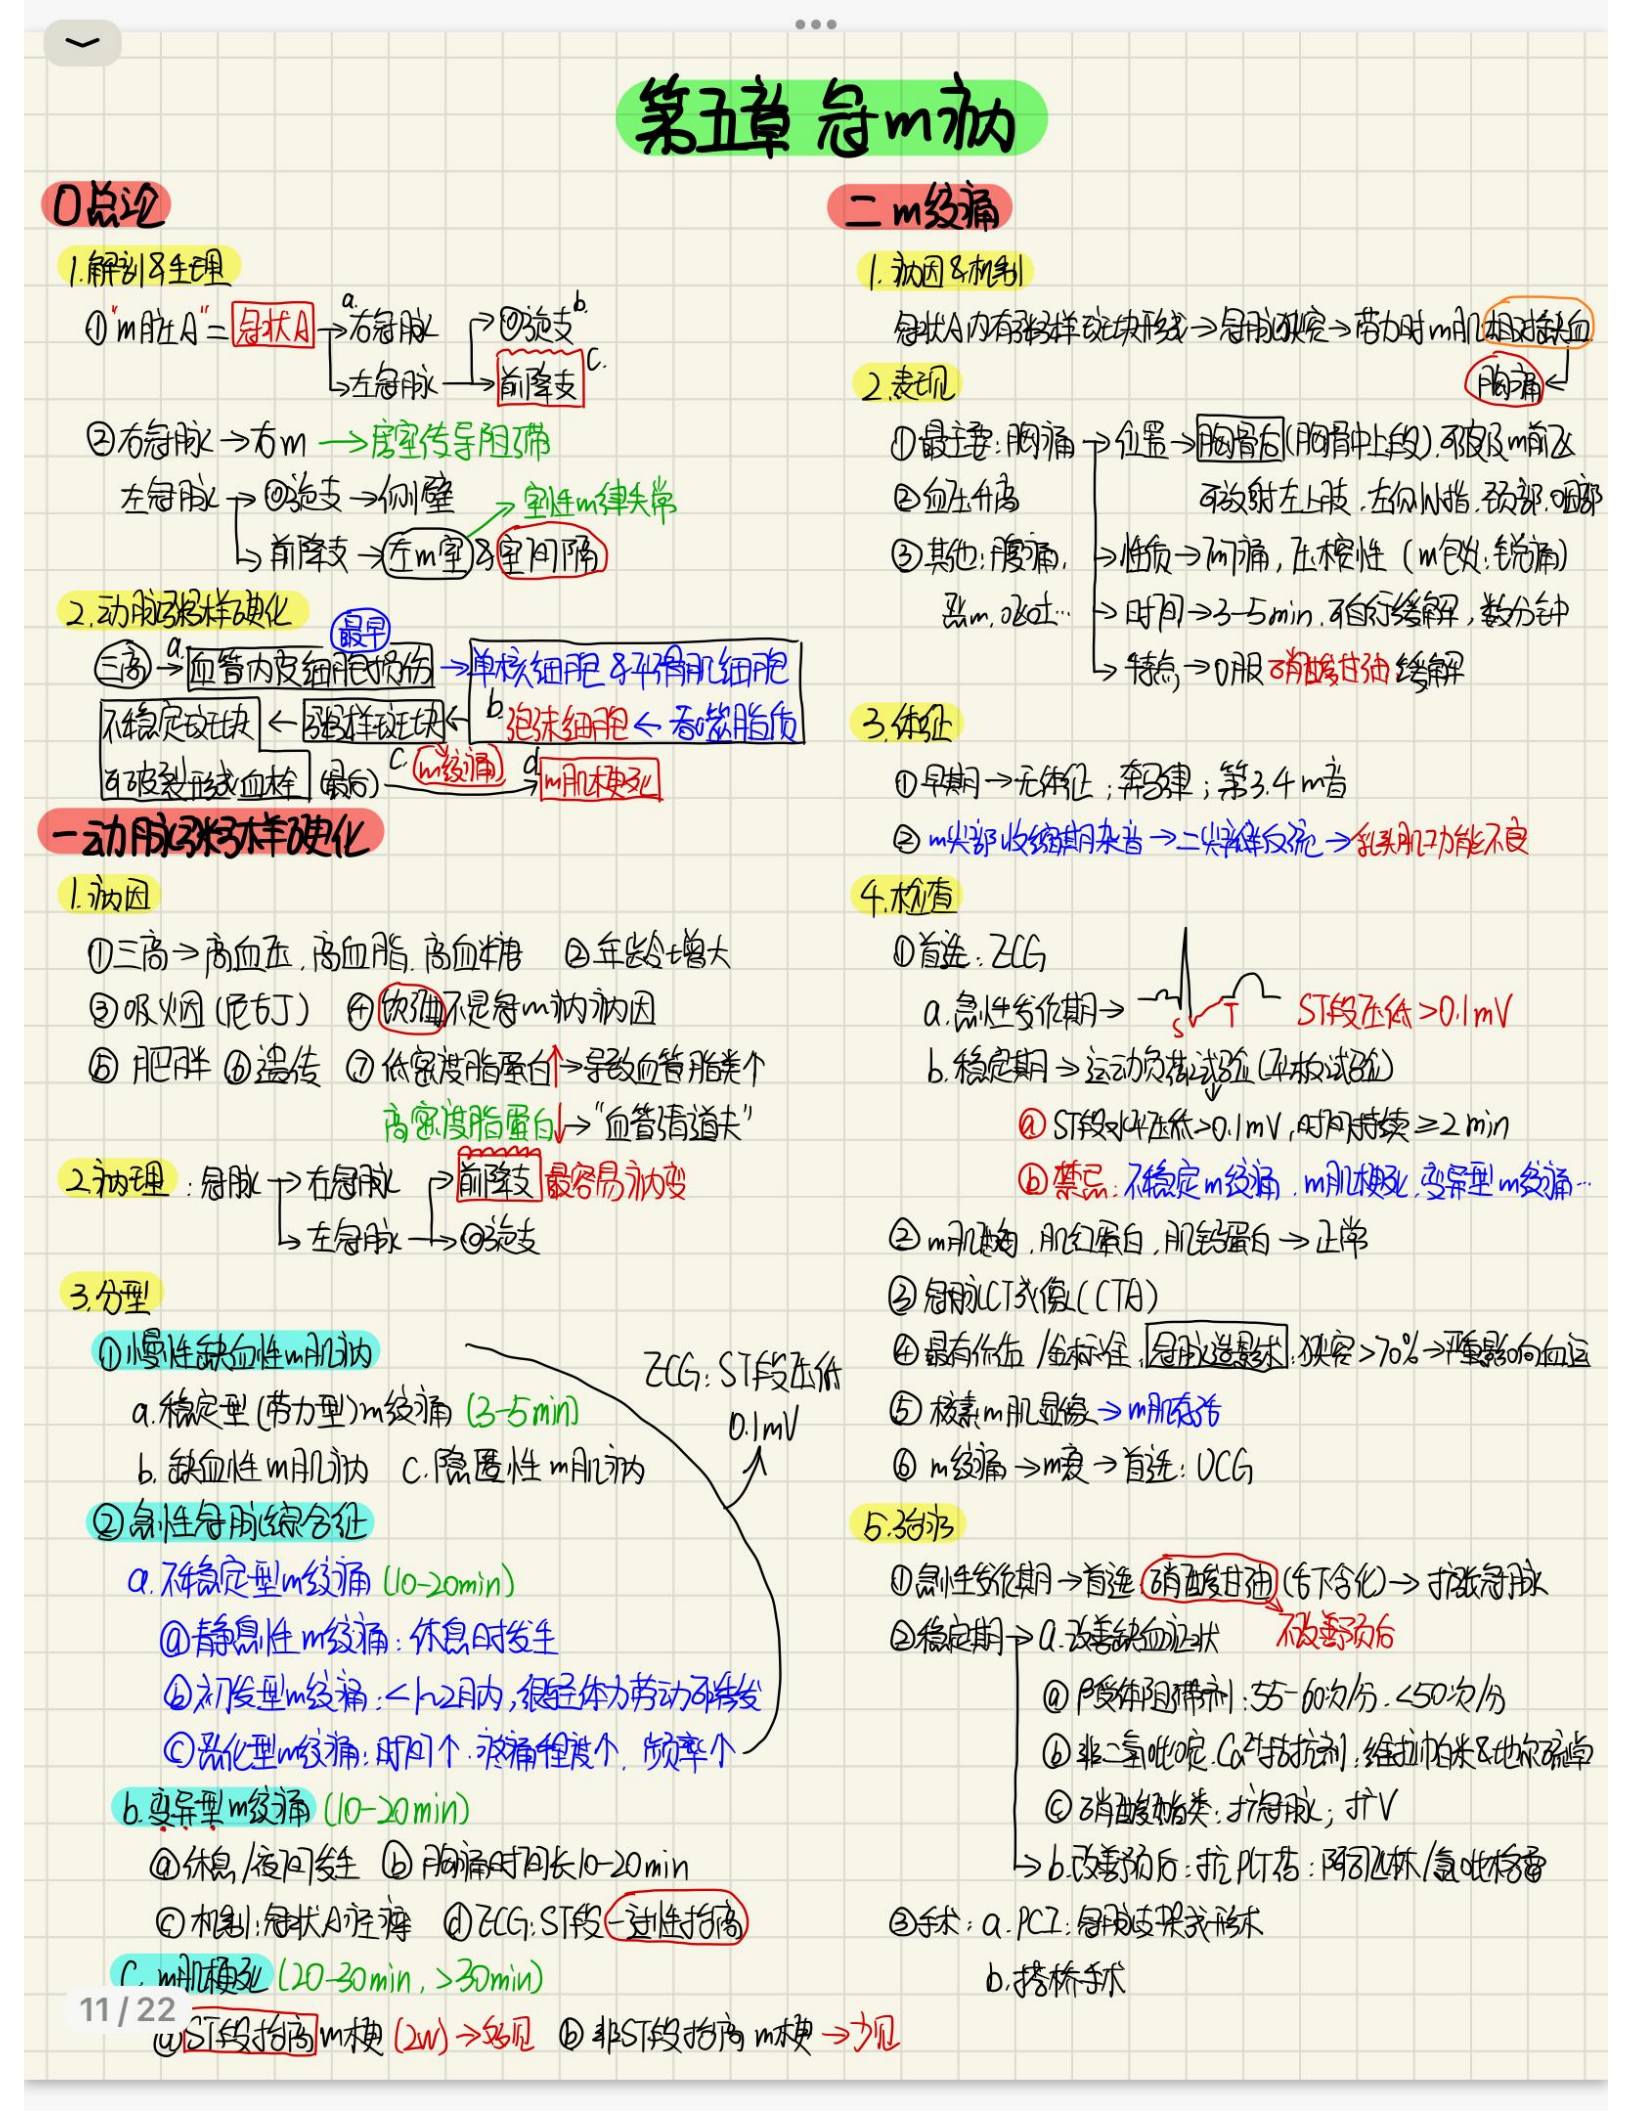 第五章 冠m病
〇总论
1.解剖&生理
①"m脏A"=冠状A
a.
→右冠脉
→回旋支
b.
→左冠脉→前降支
c.
②右冠脉→右m→房室传导阻滞
左冠脉→回旋支→侧壁
→室性m律失常
→前降支→左m室&室间隔
2.动脉粥样硬化
最早
三高→a.血管内皮细胞损伤→单核细胞&平滑肌细胞
不稳定斑块←粥样斑块←b.泡沫细胞←吞噬脂质
可破裂形成血栓(最后)
c.m绞痛
d.m肌梗死
一动脉粥样硬化
1.病因
①三高→高血压.高血脂.高血糖 ②年龄增大
③吸烟(尼古丁) ④饮酒不是冠m病病因
⑤肥胖 ⑥遗传 ⑦低密度脂蛋白↑→导致血管脂类↑
高密度脂蛋白↓→"血管清道夫"
2.病理:冠脉→右冠脉
→前降支 最容易病变
→左冠脉→回旋支
3.分型
①慢性缺血性m肌病
a.稳定型(劳力型)m绞痛(3-5min)
b.缺血性m肌病 c.隐匿性m肌病
ECG:ST段压低
0.1mV
②急性冠脉综合征
a.不稳定型m绞痛(10-20min)
ⓐ静息性m绞痛:休息时发生
ⓑ初发型m绞痛:<1~2月内,很轻体力劳动可诱发
ⓒ恶化型m绞痛:时间↑.疼痛程度↑.频率↑
b.变异型m绞痛(10-20min)
ⓐ休息/夜间发生 ⓑ胸痛时间长10-20min
ⓒ机制:冠状A痉挛 ⓓECG:ST段一过性抬高
C.m肌梗死(20-30min,>30min)
11/22
ⓐST段抬高m梗(2w)→多见 ⓑ非ST段抬高m梗→少见
二m绞痛
1.病因&机制
冠状A内有粥样斑块形成→冠脉狭窄→劳力时m肌相对缺血
→胸痛
2.表现
①最主要:胸痛→位置→胸骨后(胸骨中上段).可波及m前区
可放射左上肢.左侧小指.颈部.咽部
②血压升高
③其他:腹痛,
恶m,呕吐…
→性质→闷痛,压榨性(m包炎:锐痛)
→时间→3-5min.可自行缓解,数分钟
→特点→口服硝酸甘油缓解
3.体征
①早期→无体征;奔马律;第3.4m音
②m尖部收缩期杂音→二尖瓣反流→乳头肌功能不良
4.检查
①首选:ECG
a.急性发作期→
S T
ST段压低>0.1mV
b.稳定期→运动负荷试验(平板试验)
ⓐST段水平压低>0.1mV,时间持续≥2min
ⓑ禁忌:不稳定m绞痛.m肌梗死.变异型m绞痛…
②m肌酶.肌红蛋白.肌钙蛋白→正常
③冠脉CT成像(CTA)
④最有价值/金标准:冠脉造影术:狭窄>70%→严重影响血运
⑤核素m肌显像→m肌存活
⑥m绞痛→m衰→首选:UCG
5.治疗
①急性发作期→首选:硝酸甘油(舌下含化)→扩张冠脉
→不改善预后
②稳定期→a.改善缺血症状
ⓐβ受体阻滞剂:55-60次/分.<50次/分
ⓑ非二氢吡啶.Ca²⁺拮抗剂:维拉帕米&地尔硫䓬
ⓒ硝酸酯类:扩冠脉;扩V
→b.改善预后:抗PLT药:阿司匹林/氯吡格雷
③手术:a.PCI:冠脉支架成形术
b.搭桥手术